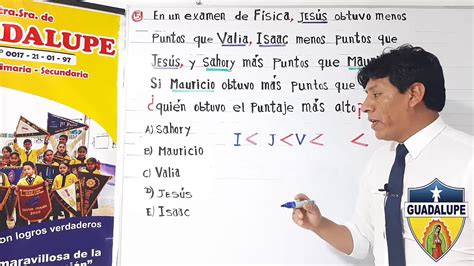 Sra. de
DALUPE
N° 0017 - 21 - 01 - 97
imaria - Secundaria
on logros verdaderos
maravillosa de la
En un examen de Física, Jesús obtuvo menos
puntos que Valia, Isaac menos puntos que
Jesús, y Sahory más puntos que
Si Mauricio obtuvo más puntos que
¿quién obtuvo el puntaje más alto?
A) Sahory
B) Mauricio
C) Valia
D) Jesús
E) Isaac
I < J < V < <
GUADALUPE